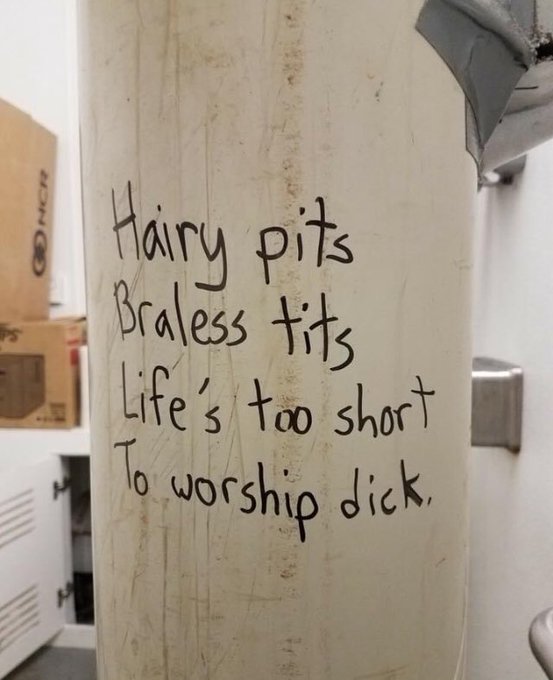 Hairy pits
Braless tits
Life's too short
To worship dick.
NCR